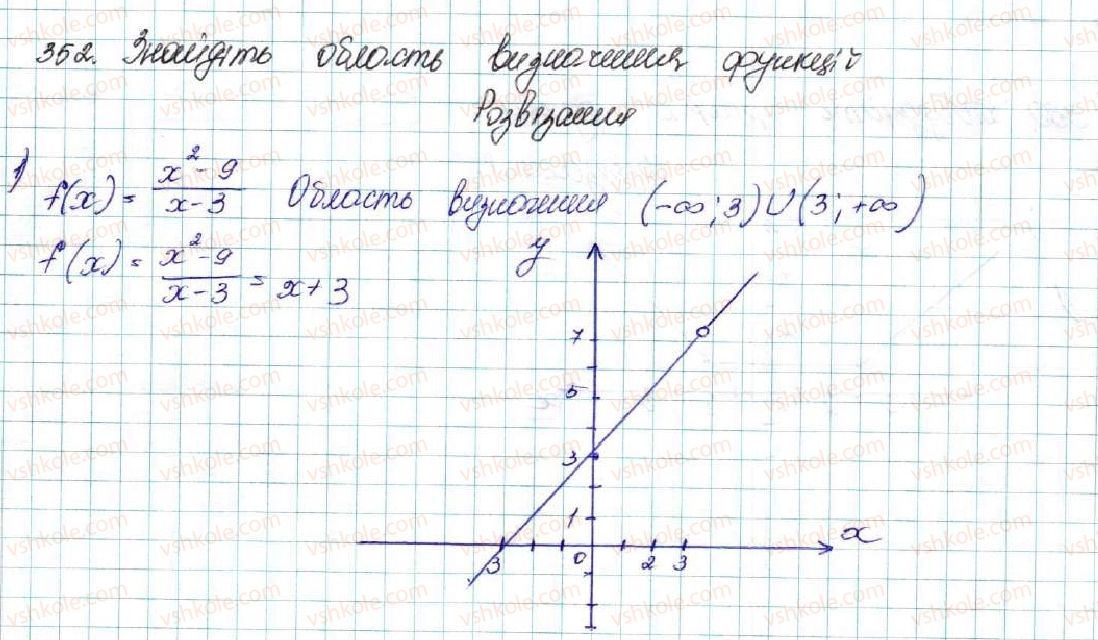 352. Знайдіть область визначення функцій
Розв'язання
1) f(x) = (x² - 9)/(x - 3) Область визначення (-∞; 3) ∪ (3; +∞)
f(x) = (x² - 9)/(x - 3) = x + 3
y
7
5
3
1
x
3 0 2 3
vshkole.com